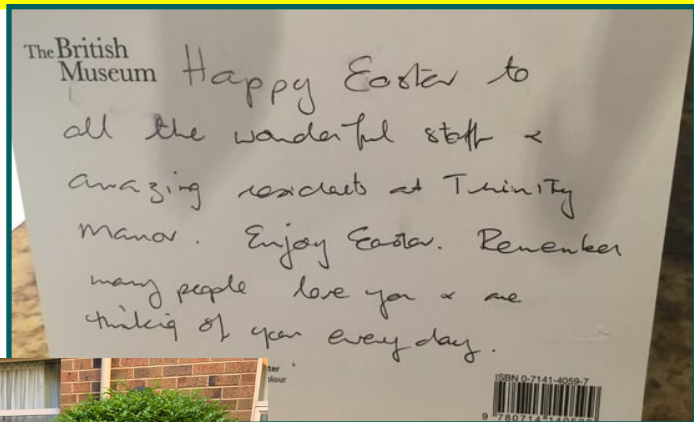 The British
Museum
Happy Easter to
all the wonderful staff &
amazing residents at Trinity
Manor. Enjoy Easter. Remember
many people love you & are
thinking of you every day.
ter
olour
ISBN 0-7141-4059-7